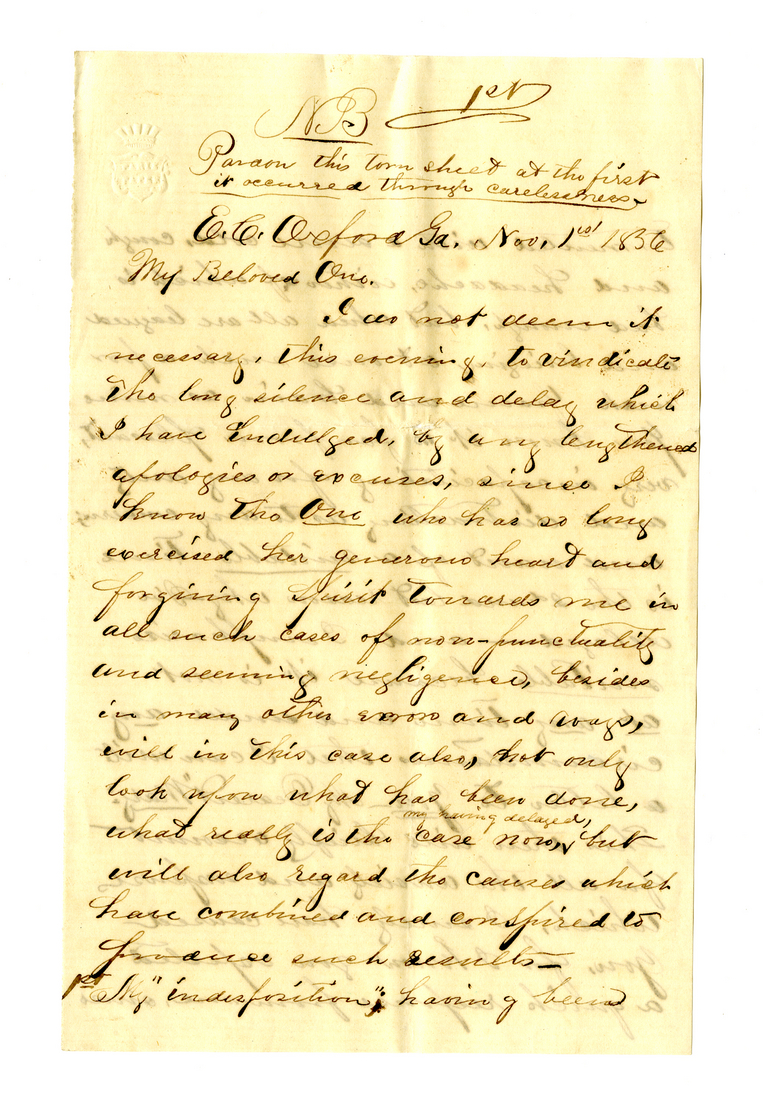 NB 1st
Pardon this torn sheet at the first
it occurred through carelessness
E. C. Oxford Ga. Nov, 1st 1856
My Beloved One.
I do not deem it
necessary, this evening, to vindicate
the long silence and delay which
I have indulged, by any lengthened
apologies or excuses, since I
know the One who has so long
exercised her generous heart and
forgiving spirit towards me in
all such cases of non-punctuality
and seeming negligence, besides
in many other errors and ways,
will in this case also, not only
look upon what has been done,
my having delayed,
what really is the case now, but
will also regard the causes which
have combined and conspired to
produce such results—
1st My "indisposition"; having been